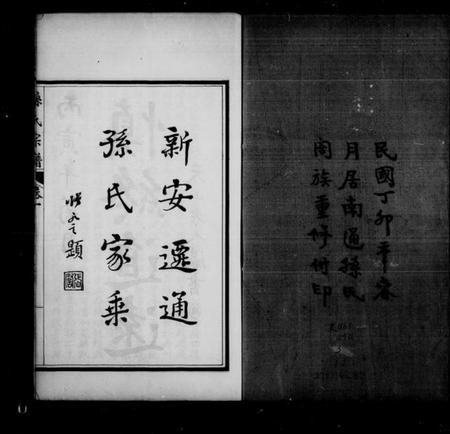 民國丁卯年
月居南通孫氏
闔族重修付印
新安遷通
孫氏家乘
題
孫氏宗譜